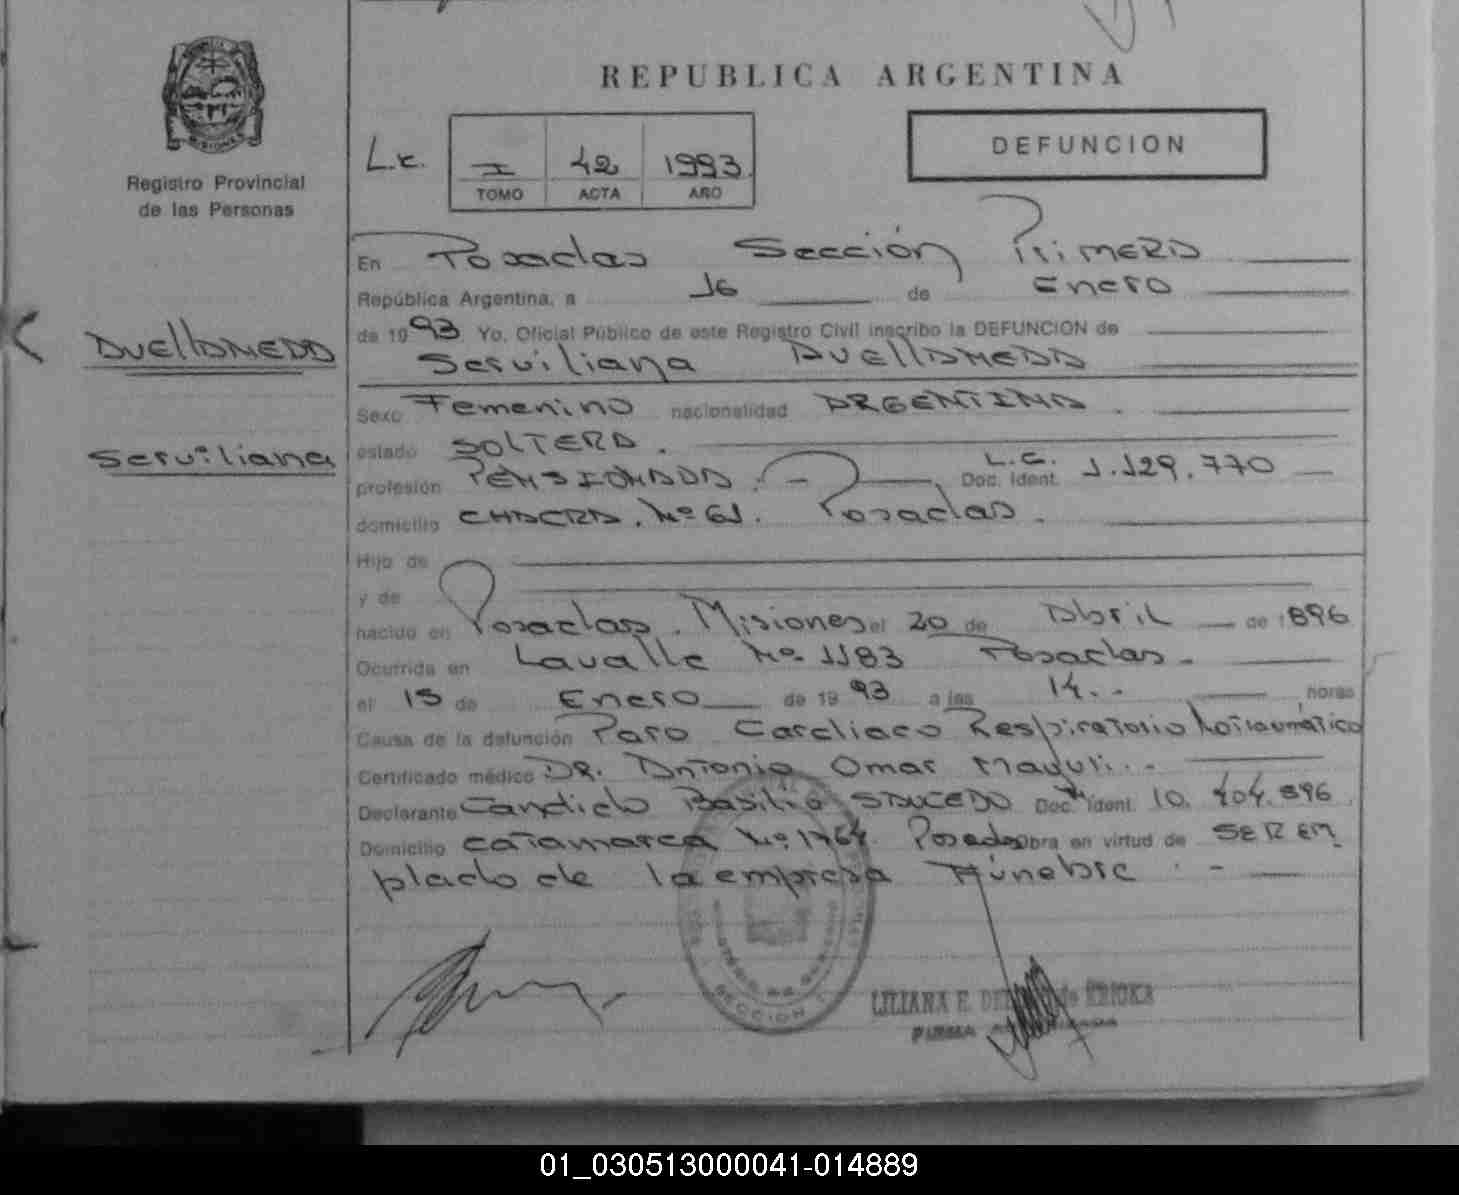 REPUBLICA ARGENTINA
DEFUNCION
L.c. I 42 1993
TOMO ACTA AÑO
Registro Provincial
de las Personas
MISIONES
En Posadas Sección Primera
República Argentina, a 16 de Enero
de 1993 Yo, Oficial Público de este Registro Civil inscribo la DEFUNCION de
AVELLANEDA
Serviliana AVELLANEDA
Sexo Femenino nacionalidad ARGENTINA.
estado SOLTERA.
Serviliana
profesión PENSIONADA. - Doc. Ident. L.C. 1.129.770
domicilio CHACRA. Nº 61. Posadas.
Hijo de
y de
nacido en Posadas. Misiones el 20 de Abril de 1896
Ocurrida en Lavalle Nº 1183 Posadas.
el 15 de Enero de 1993 a las 14.. horas
Causa de la defunción Paro Cardiaco Respiratorio Notraumático
Certificado médico DR. Antonio Omar
Declarante Candido Basilio SAUCEDO Doc. Ident. 10.404.896
Domicilio Catamarca Nº 1764. Posadas Obra en virtud de SER EM
plado de la empresa Fúnebre. -
SECCION 1
LILIANA E. DE KRIOKA
FIRMA
01_030513000041-014889